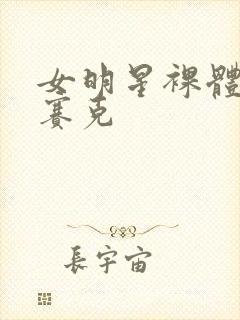 女明星裸體
賽克
長宇宙